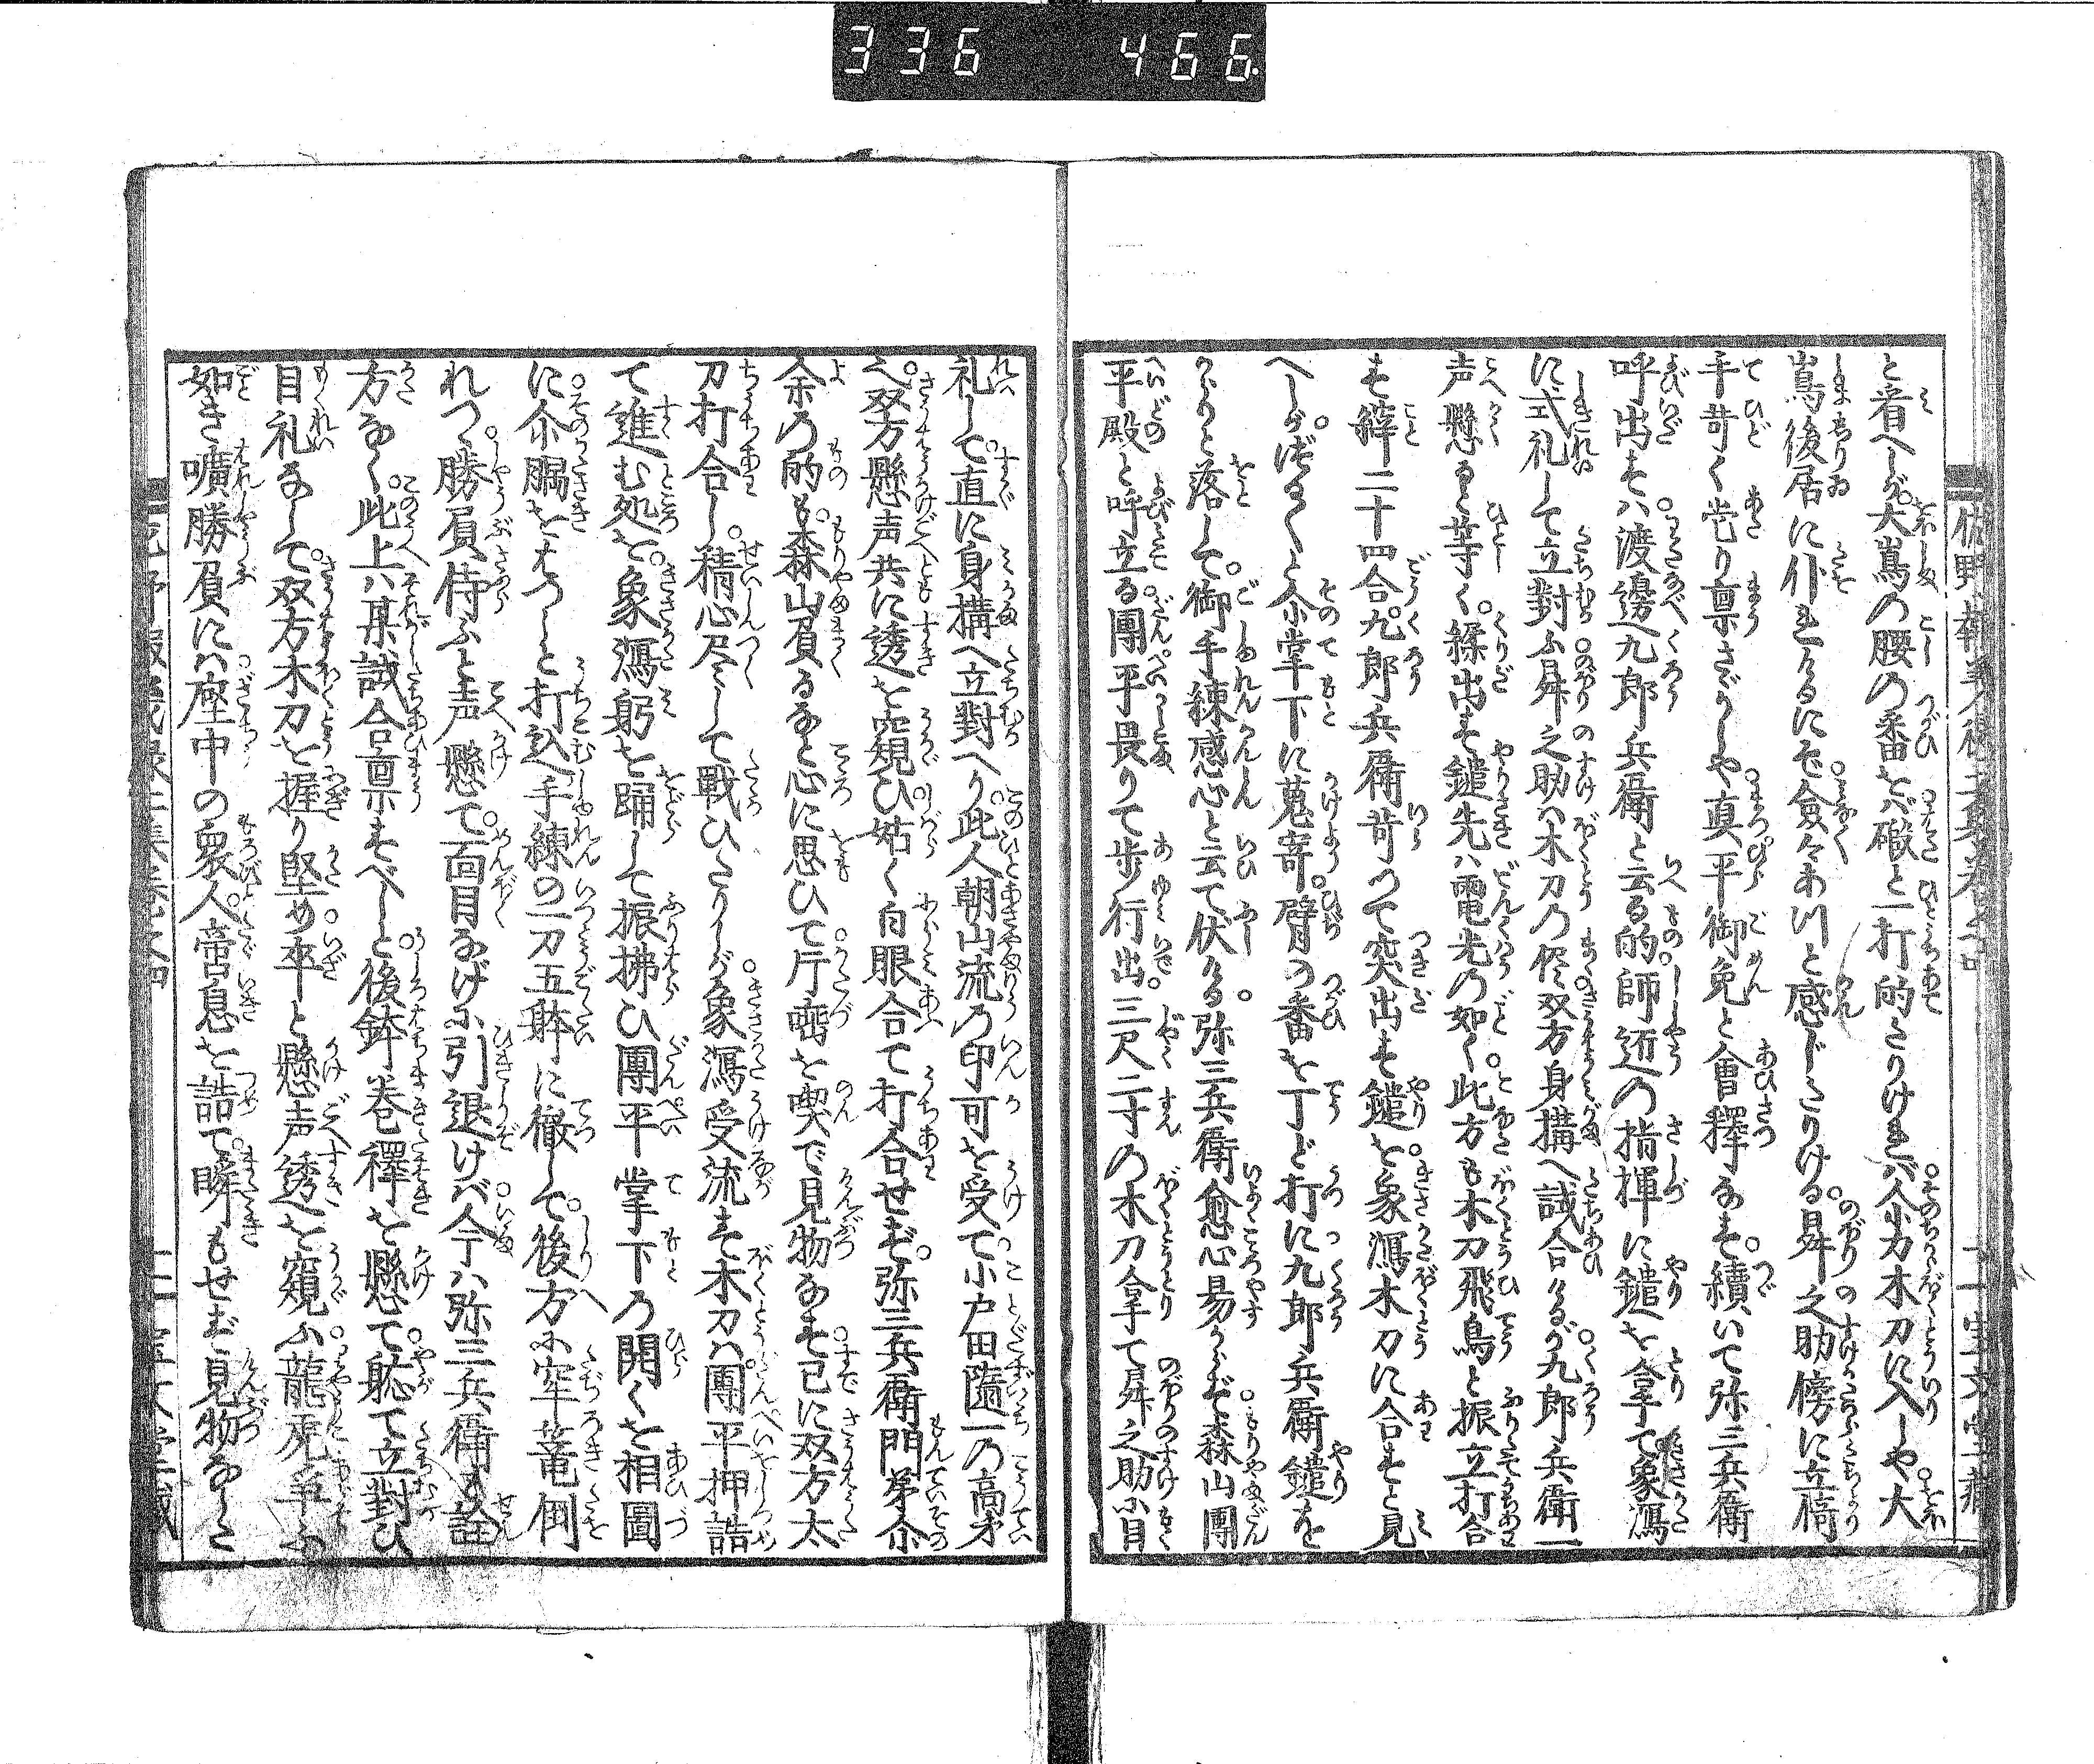 336 466
と着へしが。大嶌の腰の番をバ礑と一打的たりけれバ。尒力木刀に入しや。大
嶌後居に仆れけるにぞ。僉々あハと感じたりける。舜之助傍に立倚
手苛く当り禀さざりしや。真平御免と會釋なす。續いて弥三兵衛
呼出すハ。渡邊九郎兵衛と云る的。師近の指揮に鑓を拿て象潟
に式礼して立對ふ。舜之助ハ木刀の侭。双方身構へ試合けるが。九郎兵衛一
声懸ると等く。繰出す鑓先ハ電光の如く。此方も木刀飛鳥と振立打合
す。縡二十四合。九郎兵衛苛つて突出す鑓を。象潟木刀に合すと見
へしが。つる〳〵と尒掌下に蒐寄。臂の番を丁ど打に九郎兵衛鑓を
からりと落して。御手練感心と云て伏ける。弥三兵衛愈心易からず。森山團
平殿と呼立る。團平畏りて歩行出。三尺二寸の木刀拿て舜之助に目
礼して。直に身構へ立對へり。此人朝山流の印可を受て。小戸田隨一の高才
之。双方懸声共に透を窺ひ。姑く白眼合て打合せず。弥三兵衛門弟尒
余の的も。森山負るなと心に思ひて。片唾を喫で見物なす。已に双方太
刀打合し。精心尽して戰ひたりしが。象潟受流す木刀ハ。團平押詰
て進む処を。象潟躬を踊して振拂ひ。團平掌下の開くを相圖
に。尒膈をはつしと打込手練の一刀五躰に徹して。後方に窄篭倒
れつゝ。勝負侍ふと声懸て。面目なげに引退けバ。今ハ弥三兵衛も詮
方なく。此上ハ某試合禀すべしと。後鉢巻襷を懸て。徐て立對ひ
目礼なして。双方木刀を握り堅め。卒と懸声透を窺ふ。龍虎争ふ
如き曠勝負に。座中の衆人。啻息を詰て。瞬もせず見物なした